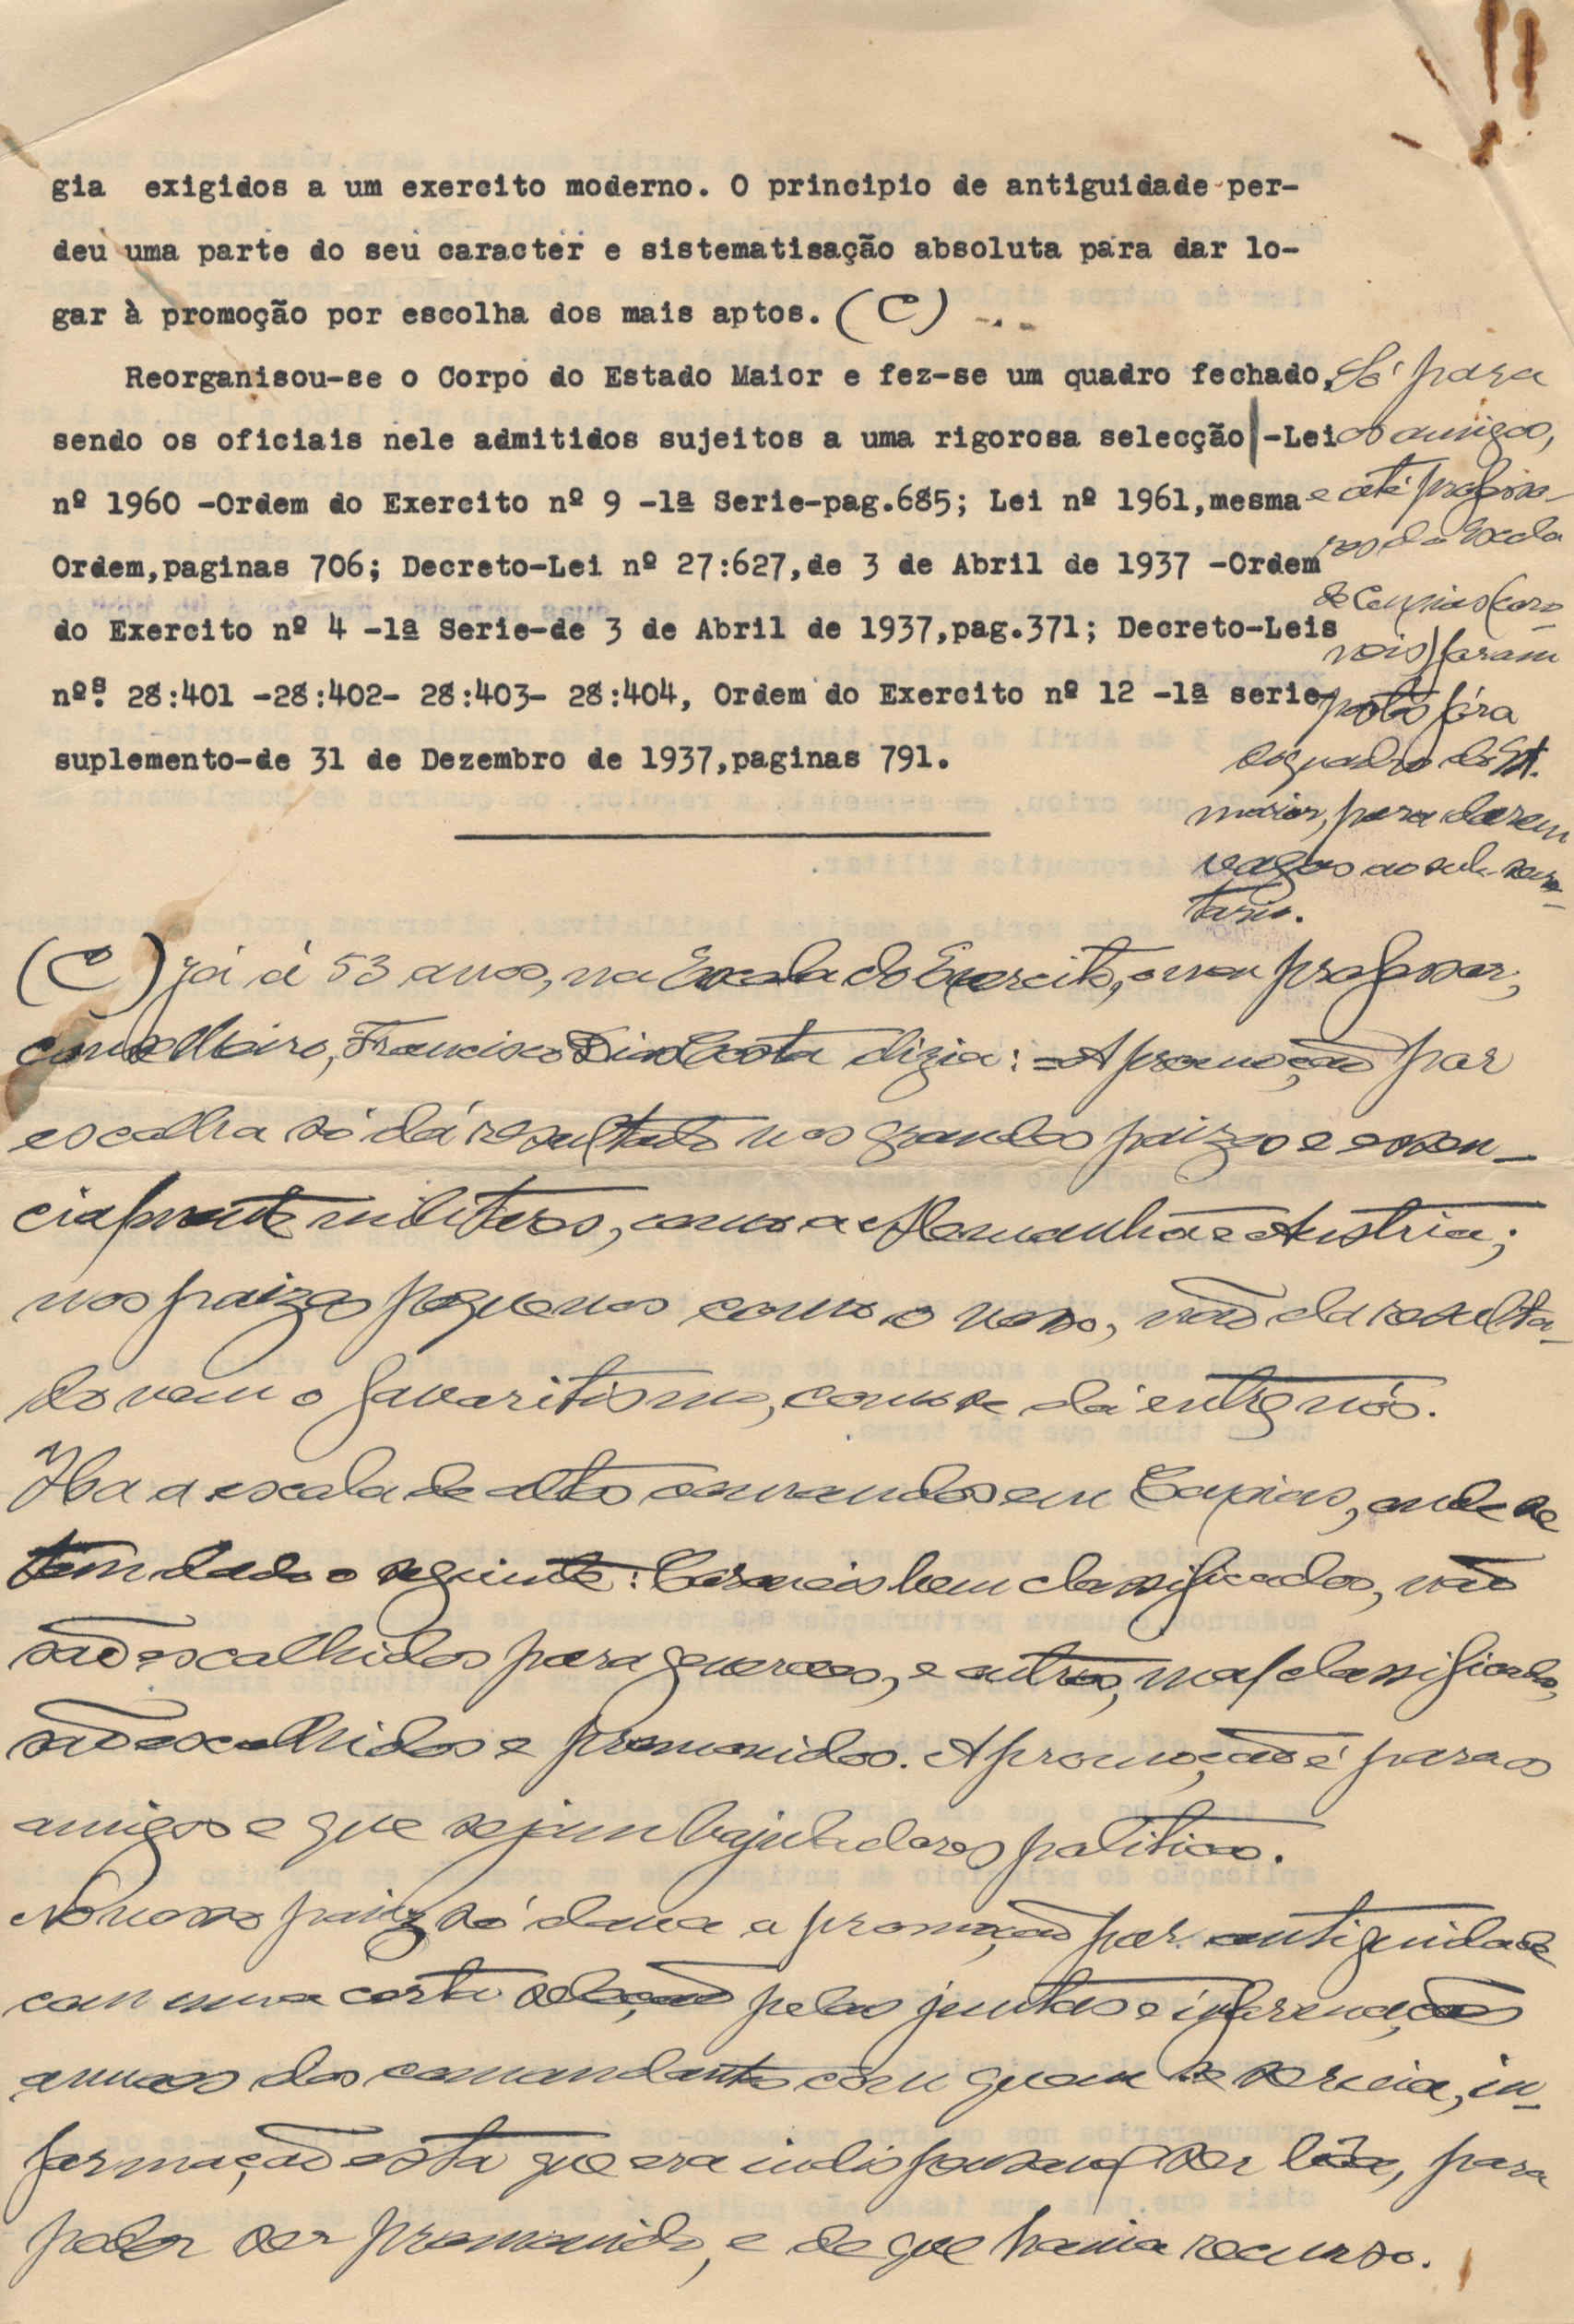 gia exigidos a um exercito moderno. O principio de antiguidade per-
deu uma parte do seu caracter e sistematisação absoluta para dar lo-
gar à promoção por escolha dos mais aptos. (C)
Reorganisou-se o Corpo do Estado Maior e fez-se um quadro fechado,
sendo os oficiais nele admitidos sujeitos a uma rigorosa selecção -Lei
nº 1960 -Ordem do Exercito nº 9 -1ª Serie-pag.685; Lei nº 1961,mesma
Ordem,paginas 706; Decreto-Lei nº 27:627,de 3 de Abril de 1937 -Ordem
do Exercito nº 4 -1ª Serie-de 3 de Abril de 1937,pag.371; Decreto-Leis
nºs. 28:401 -28:402- 28:403- 28:404, Ordem do Exercito nº 12 -1ª serie-
suplemento-de 31 de Dezembro de 1937,paginas 791.
Só para
os amigos,
e até profisso-
res da Escola
de Caxias (coro-
neis) foram
postos fóra
do quadro do Est.
maior, para darem
vagas ao sub-secre-
tario.
(C) Já á 53 anos, na Escola do Exercito, o meu professor,
conselheiro, Francisco Dias Costa dizia: =A promoção por
escolha só dá resultado nos grandes paizes e essen-
cialmente militares, como a Alemanha e Austria;
nos paizes pequenos como o nosso, não da resulta-
do vem o favoritismo, como se dá entre nós.
Ha a escola de altos comandos em Caxias, onde se
tem dado o seguinte: Coroneis bem classificados, não
são escolhidos para generaes, e outros, mal classificados,
são escolhidos e promovidos. A promoção é para os
amigos e que sejam bajuladores politicos.
No nosso paiz só dava a promoção por antiguidade
com uma certa seleção pelas juntas e informações
anuaes dos comandantes com quem se servia, in-
formação esta que era indispensavel ser bôa, para
poder ser promovido, e de que havia recurso.